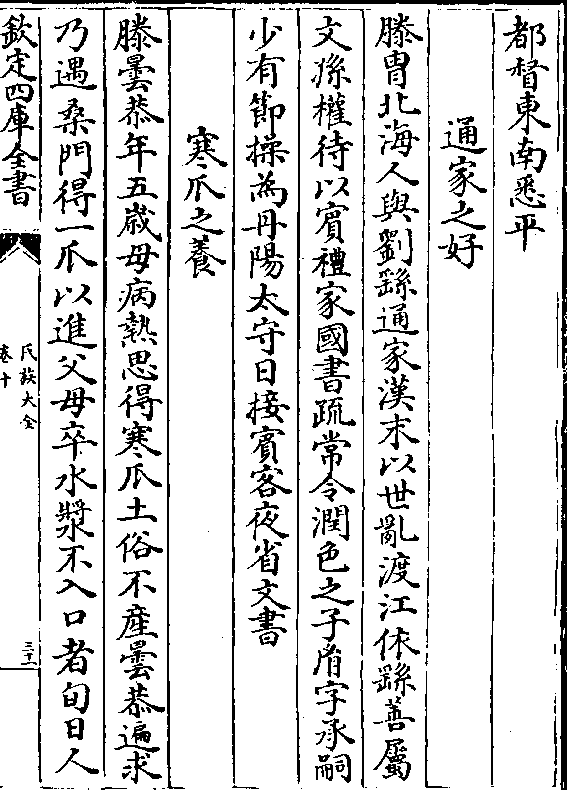 都督東南悉平
通家之好
滕胄北海人與劉繇通家漢末以世亂渡江依繇善屬
文孫權待以賓禮家國書疏常令潤色之子㣧字承嗣
少有節操為丹陽太守日接賓客夜省文書
寒瓜之養
滕曇恭年五歲母病熱思得寒瓜土俗不產曇恭遍求
乃遇桑門得一瓜以進父母卒水漿不入口者旬日人
欽定四庫全書
氏族大全
卷十
三十二